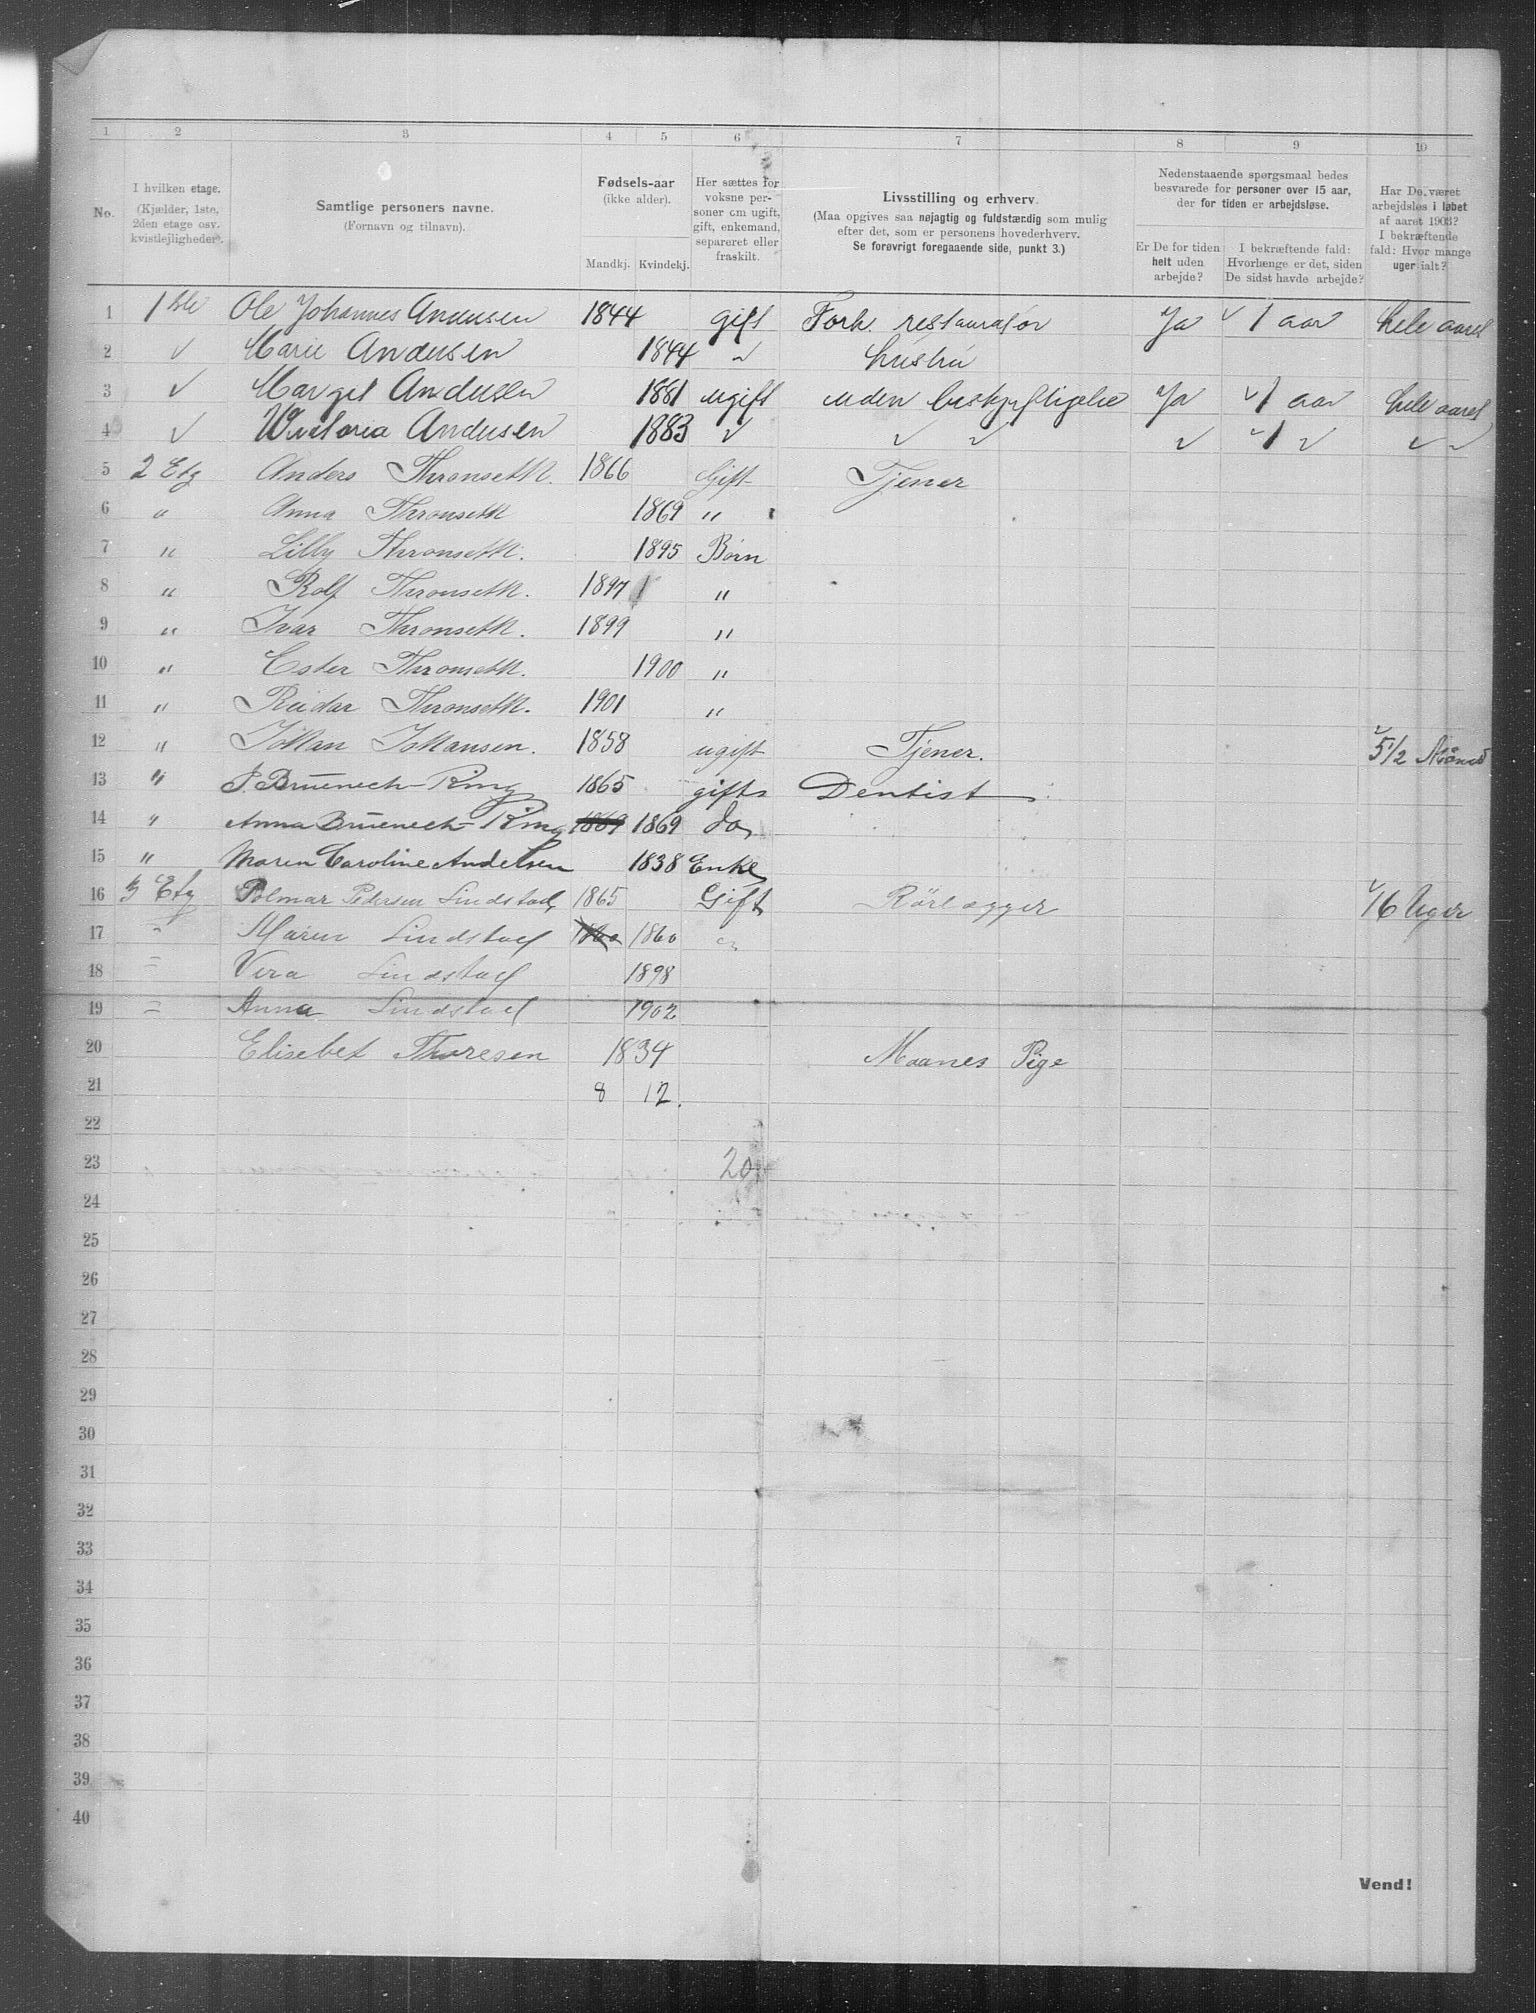 1 2 3 4 5 6 7 8 9 10
No.
I hvilken etage. (Kjælder, 1ste, 2den etage osv. kvistleiligheder).
Samtlige personers navne. (Fornavn og tilnavn).
Fødsels-aar (ikke alder).
Mandkj. Kvindekj.
Her sættes for voksne personer om ugift, gift, enkemand, separeret eller fraskilt.
Livsstilling og erhverv.
(Maa opgives saa nøjagtig og fuldstændig som mulig efter det, som er personens hovederhverv.
Se forøvrigt foregaaende side, punkt 3.)
Nedenstaaende spørgsmaal bedes besvarede for personer over 15 aar, der for tiden er arbejdsløse.
Er De for tiden helt uden arbejde?
I bekræftende fald: Hvorlænge er det, siden De sidst havde arbejde?
Har De været arbejdsløs i løbet af aaret 1903? I bekræftende fald: Hvor mange uger ialt?
1 1ste Ole Johannes Andersen 1844 gift Forh. restauratør Ja 1 aar hele aaret
2 Marie Andersen 1844 hustru
3 Margit Andersen 1881 ugift uden beskjeftigelse Ja 1 aar hele aaret
4 Andersen 1883 1
5 2 Etg Anders Thronseth. 1866 Gift Tjener
6 " Anna Thronseth 1869 "
7 " Lilly Thronseth. 1895 Børn
8 " Rolf Thronseth. 1897 "
9 " Ivar Thronseth. 1899 "
10 " Ester Thronseth. 1900 "
11 " Reidar Thronseth. 1901 "
12 " Johan Johansen. 1858 ugift Tjener. 5 1/2 Maaned
13 " J. Bruenech-Ring 1865 gift Dentist
14 " Anna Bruenech-Ring 1869 1869 do
15 " Maren Caroline Andersen 1838 Enke
16 3 Etg Pedersen Lindstad 1865 Gift Rørlægger 16 Uger
17 " Maren Lindstad 1860 1860 "
18 Vera Lindstad 1898
19 Anna Lindstad 1902
20 Elisebet Thoresen 1834 Maanes Pige
21 8 12.
22
23 20
24
25
26
27
28
29
30
31
32
33
34
35
36
37
38
39
40
Vend!